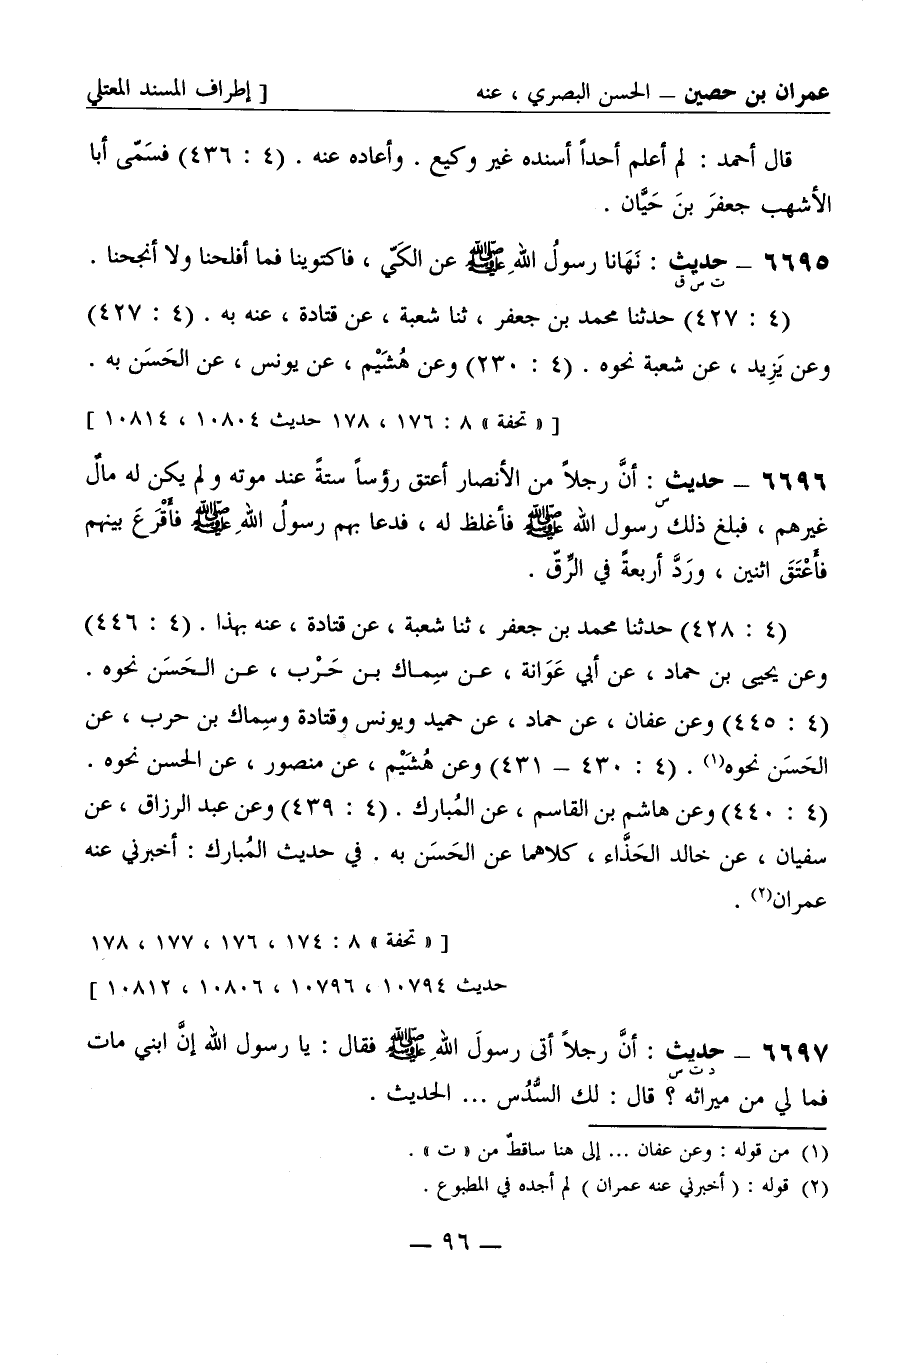 عمران بن حصين – الحسن البصري ، عنه [ إطراف المسند المعتلي
قال أحمد : لم أعلم أحداً أسنده غير وكيع . وأعاده عنه . (٤ : ٤٣٦) فسَمّى أبا
الأشهب جعفرَ بنَ حَيَّان .
٦٦٩٥ – حديث : نَهَانا رسولُ اللهِ ﷺ عن الكَيّ ، فاكتوينا فما أفلحنا ولا أنجحنا .
ت س ق
(٤ : ٤٢٧) حدثنا محمد بن جعفر ، ثنا شعبة ، عن قتادة ، عنه به . (٤ : ٤٢٧)
وعن يَزِيد ، عن شعبة نحوه . (٤ : ٢٣٠) وعن هُشَيْم ، عن يونس ، عن الحَسَن به .
[ « تحفة » ٨ : ١٧٦ ، ١٧٨ حديث ١٠٨٠٤ ، ١٠٨١٤ ]
٦٦٩٦ – حديث : أنَّ رجلاً من الأنصار أعتق رؤساً ستةً عند موته ولم يكن له مالٌ
س
غيرهم ، فبلغ ذلك رسول الله ﷺ فأغلظ له ، فدعا بهم رسولُ اللهِ ﷺ فأَقْرَعَ بينهم
فأَعْتَقَ اثنين ، ورَدَّ أربعةً في الرِّقّ .
(٤ : ٤٢٨) حدثنا محمد بن جعفر ، ثنا شعبة ، عن قتادة ، عنه بهذا . (٤ : ٤٤٦)
وعن يحيى بن حماد ، عن أبي عَوَانة ، عن سِماك بن حَرْب ، عن الحَسَن نحوه .
(٤ : ٤٤٥) وعن عفان ، عن حماد ، عن حميد ويونس وقتادة وسِماك بن حرب ، عن
الحَسَن نحوه(١) . (٤ : ٤٣٠ – ٤٣١) وعن هُشَيْم ، عن منصور ، عن الحسن نحوه .
(٤ : ٤٤٠) وعن هاشم بن القاسم ، عن المُبارك . (٤ : ٤٣٩) وعن عبد الرزاق ، عن
سفيان ، عن خالد الحَذَّاء ، كلاهما عن الحَسَن به . في حديث المُبارك : أخبرني عنه
عمران(٢) .
[ « تحفة » ٨ : ١٧٤ ، ١٧٦ ، ١٧٧ ، ١٧٨
حديث ١٠٧٩٤ ، ١٠٧٩٦ ، ١٠٨٠٦ ، ١٠٨١٢ ]
٦٦٩٧ – حديث : أنَّ رجلاً أتى رسولَ اللهِ ﷺ فقال : يا رسول الله إنَّ ابني مات
د ت س
فما لي من ميراثه ؟ قال : لك السُّدُس ... الحديث .
(١) من قوله : وعن عفان ... إلى هنا ساقطٌ من « ت » .
(٢) قوله : ( أخبرني عنه عمران ) لم أجده في المطبوع .
– ٩٦ –